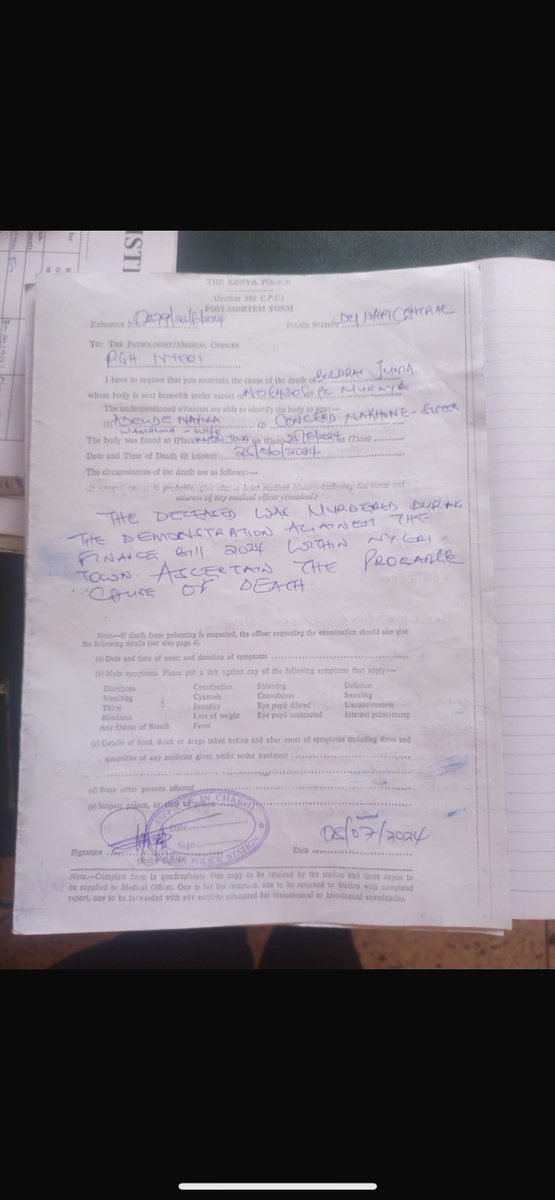 THE KENYA POLICE
(Section 386 C.P.C.)
POST-MORTEM FORM
Reference No. 29/25/6/2024 POLICE STATION DCI NYERI CENTRAL
TO: THE PATHOLOGIST/MEDICAL OFFICER
PGH NYERI
I have to request that you ascertain the cause of the death of JUMA
whose body is sent herewith under escort of NO 64306 PC
The undermentioned witnesses are able to identify the body to you:—
(1) (2)
WIFE
The body was found at (Place) TOWN on (Date) 25/6/2024 at (Time)
Date and Time of Death (if known) 25/6/2024
The circumstances of the death are as follows:—
address of any medical officer consulted)
THE DECEASED WAS MURDERED DURING
THE DEMONSTRATION AGAINST THE
FINANCE BILL 2024 WITHIN NYERI
TOWN. ASCERTAIN THE PROBABLE
CAUSE OF DEATH.
Note.—If death from poisoning is suspected, the officer requesting the examination should also give
the following details (see also page 4).
(a) Date and time of onset and duration of symptoms
(b) Main symptoms. Please put a tick against any of the following symptoms that apply:—
Diarrhoea Constipation Shivering Delirium
Vomiting Cyanosis Convulsions Sweating
Thirst Jaundice Eye pupil dilated Unconsciousness
Blindness Loss of weight Eye pupil contracted Internal pains/cramp
Any Odour of Breath Fever
(c) Details of food, drink or drugs taken before and after onset of symptoms including times and
quantities of any medicine given whilst under treatment
(d) Were other persons affected
(e) Suspect poison, or
OFFICER IN CHARGE
Date
Sign
POLICE STATION
Signature
(Police Officer)
Date 08/07/2024
Note.—Complete form in quadruplicate. One copy to be retained by the station and three copies to
be supplied to Medical Officer. One is for his retention, one to be returned to Station with completed
report, one to be forwarded with any exhibits submitted for toxicological or histological examination.